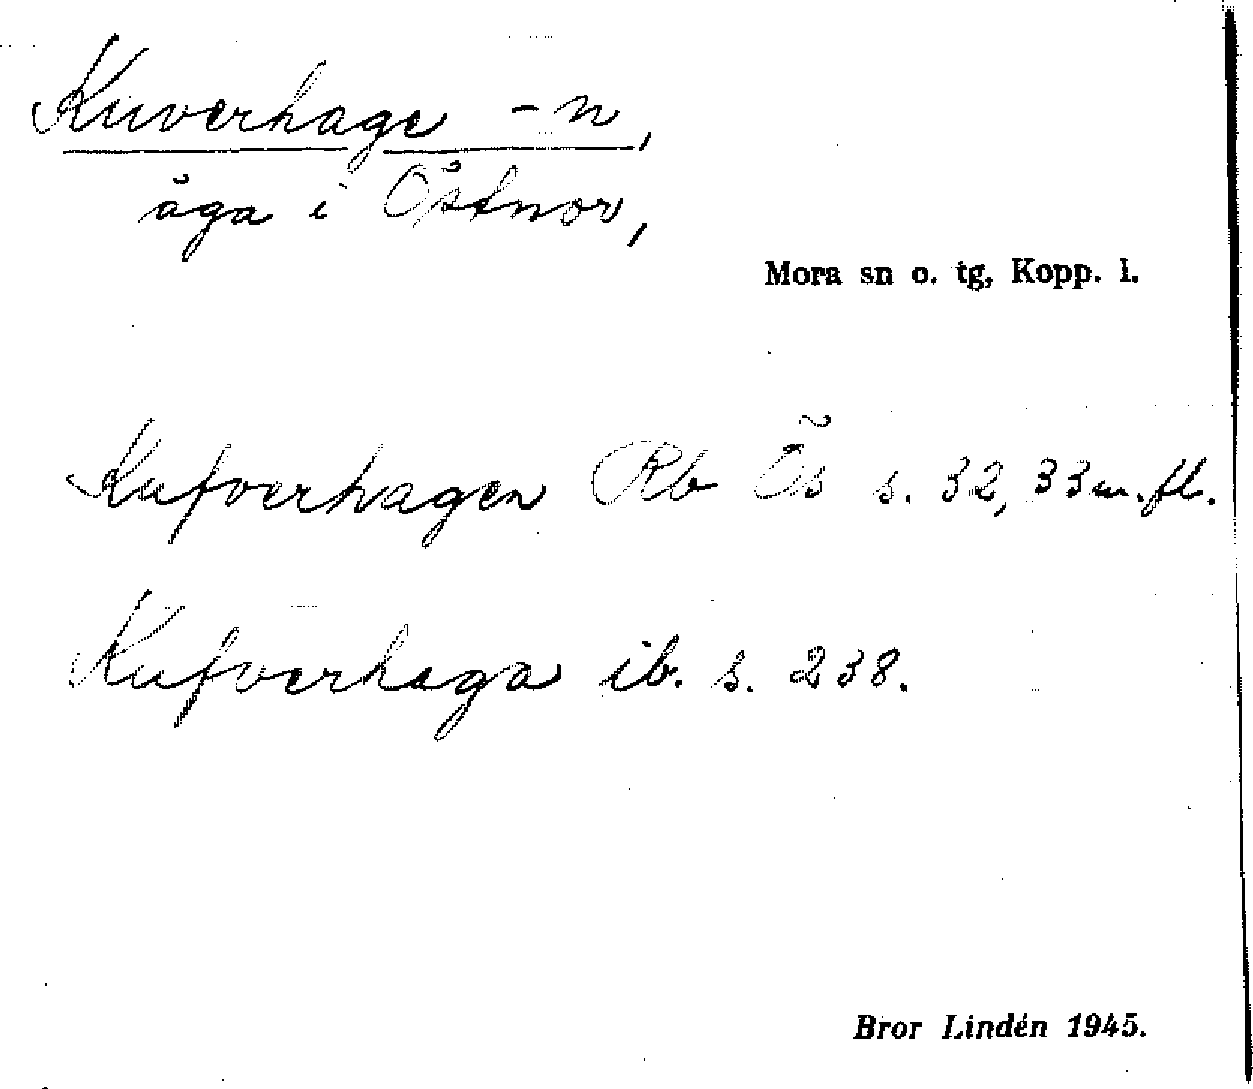 Kuverhage -n,
åga i Östnor,
Mora sn o. tg, Kopp. l.
Kufverhagen Rb Ös s. 32, 33 m. fl.
Kufverhaga ib. s. 238.
Bror Lindén 1945.